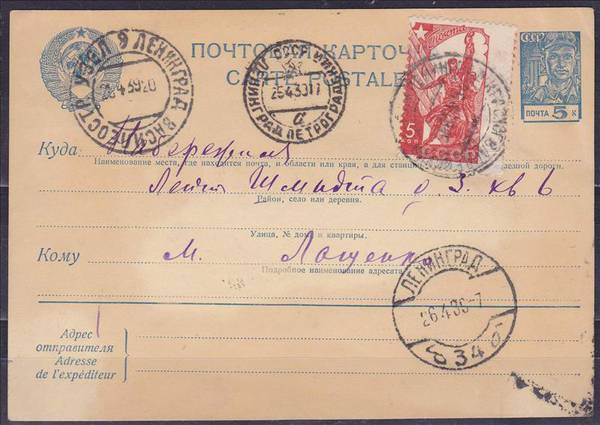 ПОЧТОВАЯ КАРТОЧКА
CARTE POSTALE
СССР
ПОЧТА 5 К
5 КОП
ЛЕНИНГРАД 9
26.4.39.20
ЛЕНИНГРАД ПЕТРОГРАДСК
СССР
25.4.39 17
а
Куда Набережная
Наименование места, где находится почта, и области или края, а для станции наименование железной дороги.
Лейт Шмидта д 3. кв 6
Район, село или деревня.
Улица, № дома и квартиры.
Кому М. Лощенко
Подробное наименование адресата
ЛЕНИНГРАД
26.4.39-7
34
Адрес
отправителя
Adresse
de l'expéditeur